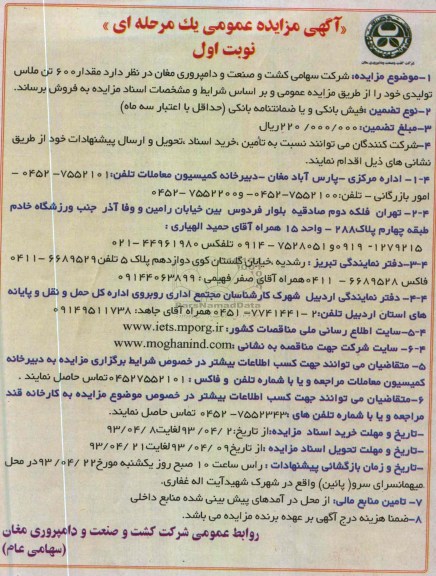 «آگهی مزایده عمومی یك مرحله ای»
نوبت اول
شرکت کشت و صنعت و دامپروری مغان
۱-موضوع مزایده: شرکت سهامی کشت و صنعت و دامپروری مغان در نظر دارد مقدار ۶۰۰ تن ملاس
تولیدی خود را از طریق مزایده عمومی و بر اساس شرایط و مشخصات اسناد مزایده به فروش برساند.
۲-نوع تضمین :فیش بانکی و یا ضمانتنامه بانکی (حداقل با اعتبار سه ماه)
۳-مبلغ تضمین:۲۲۰/۰۰۰/۰۰۰ریال
۴-شرکت کنندگان می توانند نسبت به تأمین ،خرید اسناد ،تحویل و ارسال پیشنهادات خود از طریق
نشانی های ذیل اقدام نمایند.
۴-۱- اداره مرکزی –پارس آباد مغان –دبیرخانه کمیسیون معاملات تلفن:۷۵۵۲۱۰۱–۰۴۵۲ -
امور بازرگانی – تلفن:۷۵۵۲۱۰۰-۰۴۵۲ و۷۵۵۲۲۰۰۹-۰۴۵۲
۴-۲- تهران فلکه دوم صادقیه بلوار فردوس بین خیابان رامین و وفا آذر جنب ورزشگاه خادم
طبقه چهارم پلاک۲۸۸ – واحد ۱۵ همراه آقای حمید الهیاری :
۱۲۷۹۲۱۵-۰۹۱۹ و ۷۵۲۸۰۵۱ – ۰۹۱۴ تلفکس ۴۴۹۶۱۹۸۰ -۰۲۱
۴-۳-دفتر نمایندگی تبریز : رشدیه ،خیابان گلستان کوی دوازدهم پلاک ۵ تلفن۶۶۸۹۵۲۹-۰۴۱۱
فاکس ۶۶۸۹۵۲۸ - ۰۴۱۱همراه آقای صفر فهیمی : ۰۹۱۴۴۰۶۳۸۹۹
۴-۴- دفتر نمایندگی اردبیل شهرک کارشناسان مجتمع اداری روبروی اداره کل حمل و نقل و پایانه
های استان اردبیل تلفن:۲ –۷۷۴۱۴۴۱-۰۴۵۱ همراه آقای جاهد: ۰۹۱۴۹۵۱۱۷۳۸
۴-۵-سایت اطلاع رسانی ملی مناقصات کشور: www.iets.mporg.ir
۴-۶-سایت شرکت جهت مناقصه به نشانی :www.moghanind.com
۵- متقاضیان می توانند جهت کسب اطلاعات بیشتر در خصوص شرایط برگزاری مزایده به دبیرخانه
کمیسیون معاملات مراجعه و یا با شماره تلفن و فاکس : ۰۴۵۲۷۵۵۲۱۰۱تماس حاصل نمایند .
۶-متقاضیان می توانند جهت کسب اطلاعات بیشتر در خصوص موضوع مزایده به کارخانه قند
مراجعه و یا با شماره تلفن های :۷۵۵۲۳۴۳-۰۴۵۲ تماس حاصل نمایند.
-تاریخ و مهلت خرید اسناد مزایده :از تاریخ:۲ /۰۴ /۹۳ لغایت۸ /۹۳/۰۴
-تاریخ و مهلت تحویل اسناد مزایده :از تاریخ ۰۹ /۰۴ /۹۳ لغایت ۲۱ /۹۳/۰۴
-تاریخ و زمان بازگشائی پیشنهادات : راس ساعت ۱۰ صبح روز یکشنبه مورخ۲۲ /۰۴ /۹۳در محل
میهمانسرای سرو( پائین) واقع در شهرک شهیدآیت اله غفاری.
۷- تامین منابع مالی: از محل در آمدهای پیش بینی شده منابع داخلی
۸-ضمنا هزینه درج آگهی بر عهده برنده مزایده می باشد.
روابط عمومی شرکت کشت و صنعت و دامپروری مغان
(سهامی عام)